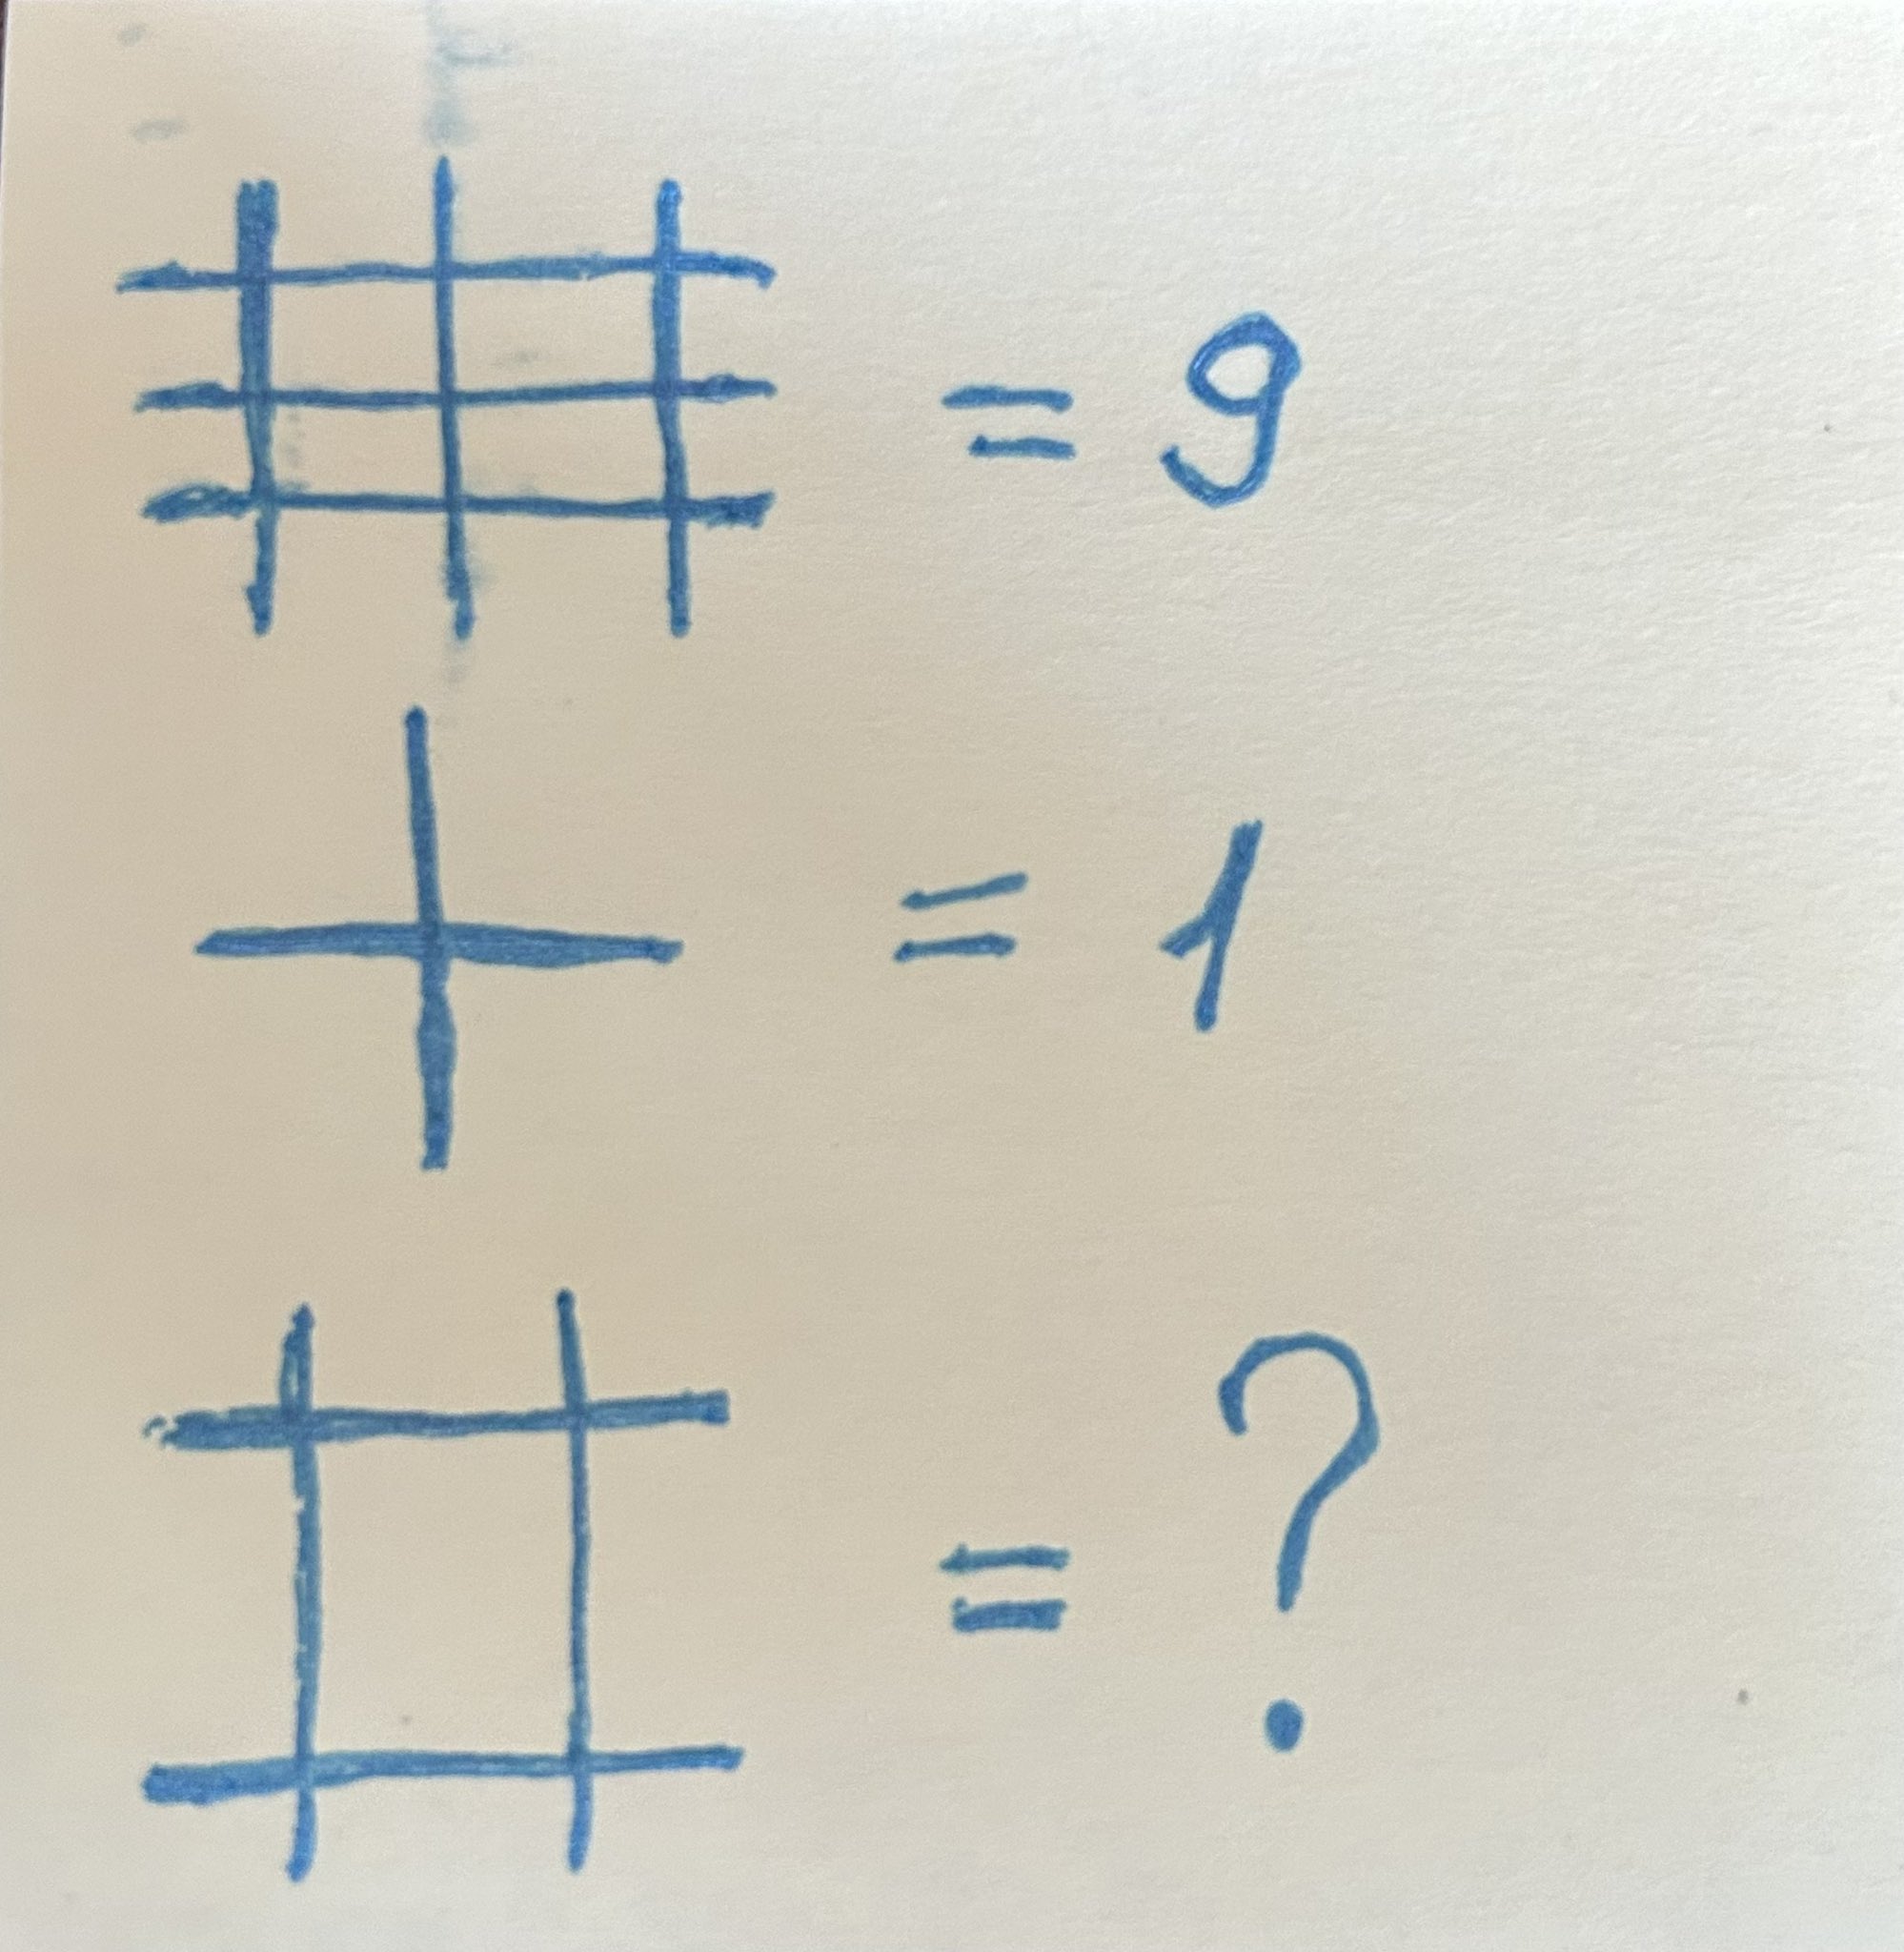 = 9
= 1
= ?